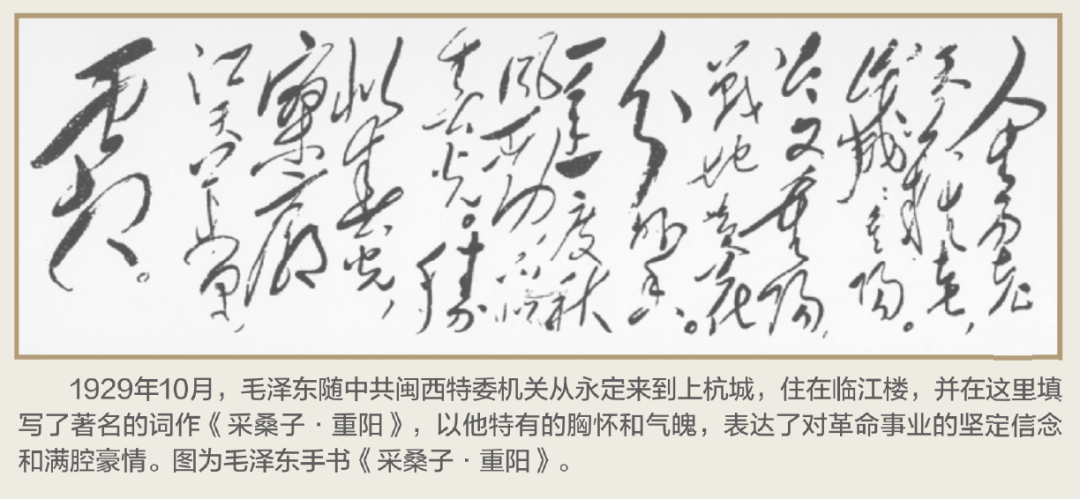 人生易老
天難老,
歲歲重陽。
今又重陽,
戰地黄花
分外香。
一年一度秋
風勁,不似
春光。勝
似春光,
寥廓
江天萬里
霜。
1929年10月，毛泽东随中共闽西特委机关从永定来到上杭城，住在临江楼，并在这里填
写了著名的词作《采桑子·重阳》，以他特有的胸怀和气魄，表达了对革命事业的坚定信念
和满腔豪情。图为毛泽东手书《采桑子·重阳》。